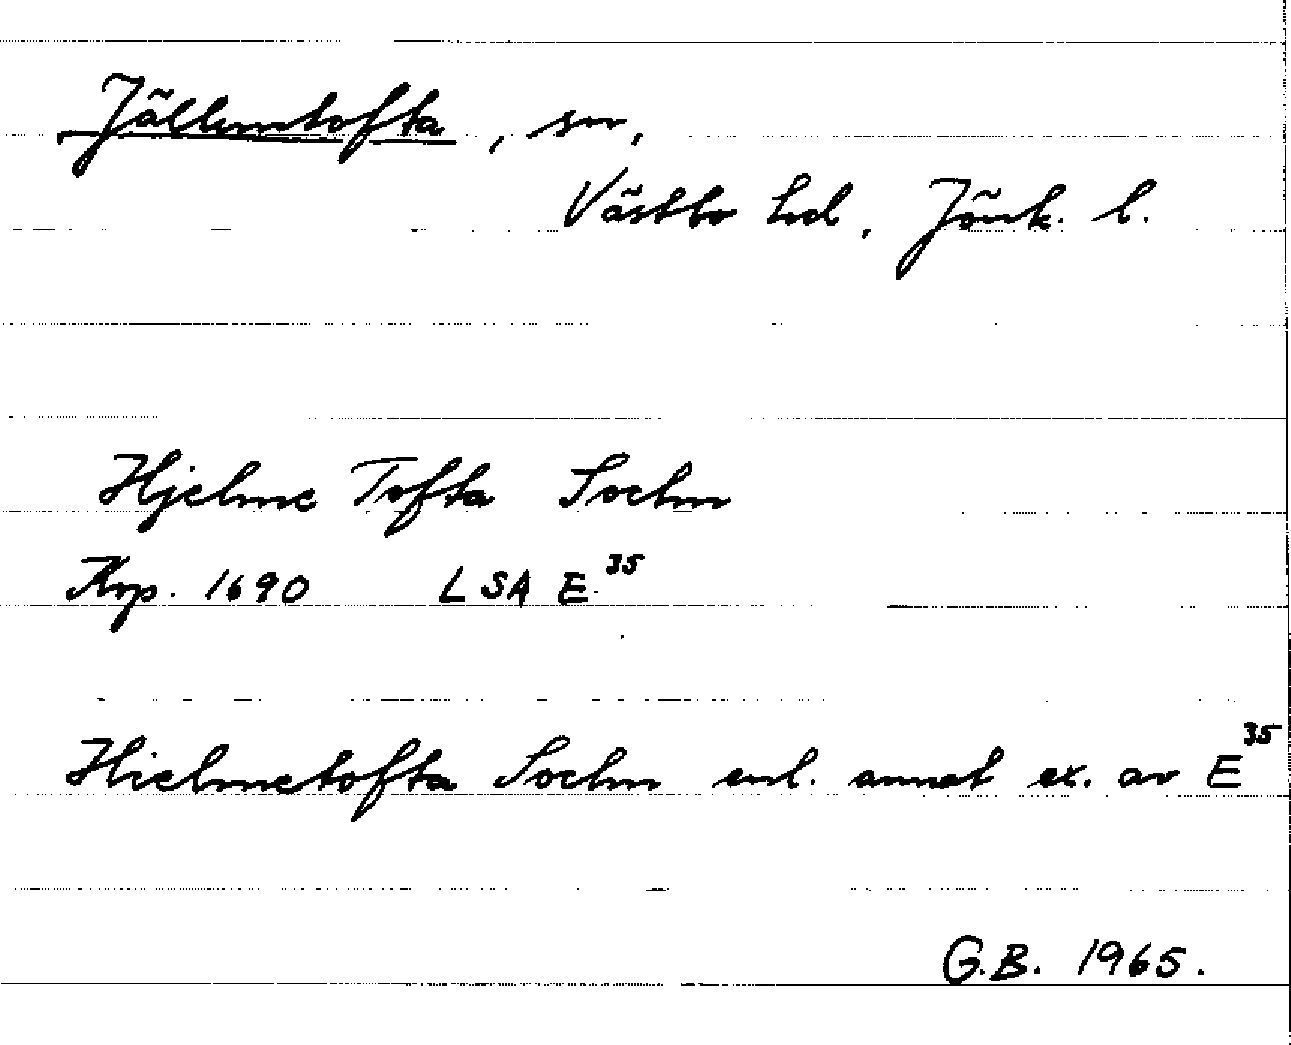 Jälluntofta, sn,
Västbo hd, Jönk. l.
Hjelme Tofta Sochn
Krp. 1690 LSA E 35
Hielmetofta Sochn enl. annat ex. av E 35
G.B. 1965.